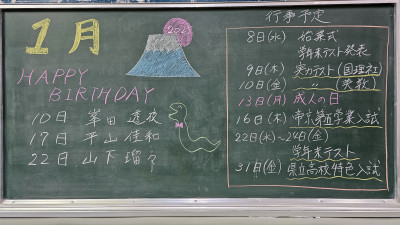 1月
2025
HAPPY
BIRTHDAY
10日 峯田 透衣
17日 平山 佳和
22日 山下 瑠々
行事予定
8日(水) 始業式
学年末テスト発表
9日(木) 実力テスト(国理社)
10日(金) 〃 (英数)
13日(月) 成人の日
16日(木) 帝京第五学業入試
22日(水)~24日(金)
学年末テスト
31日(金) 県立高校特色入試